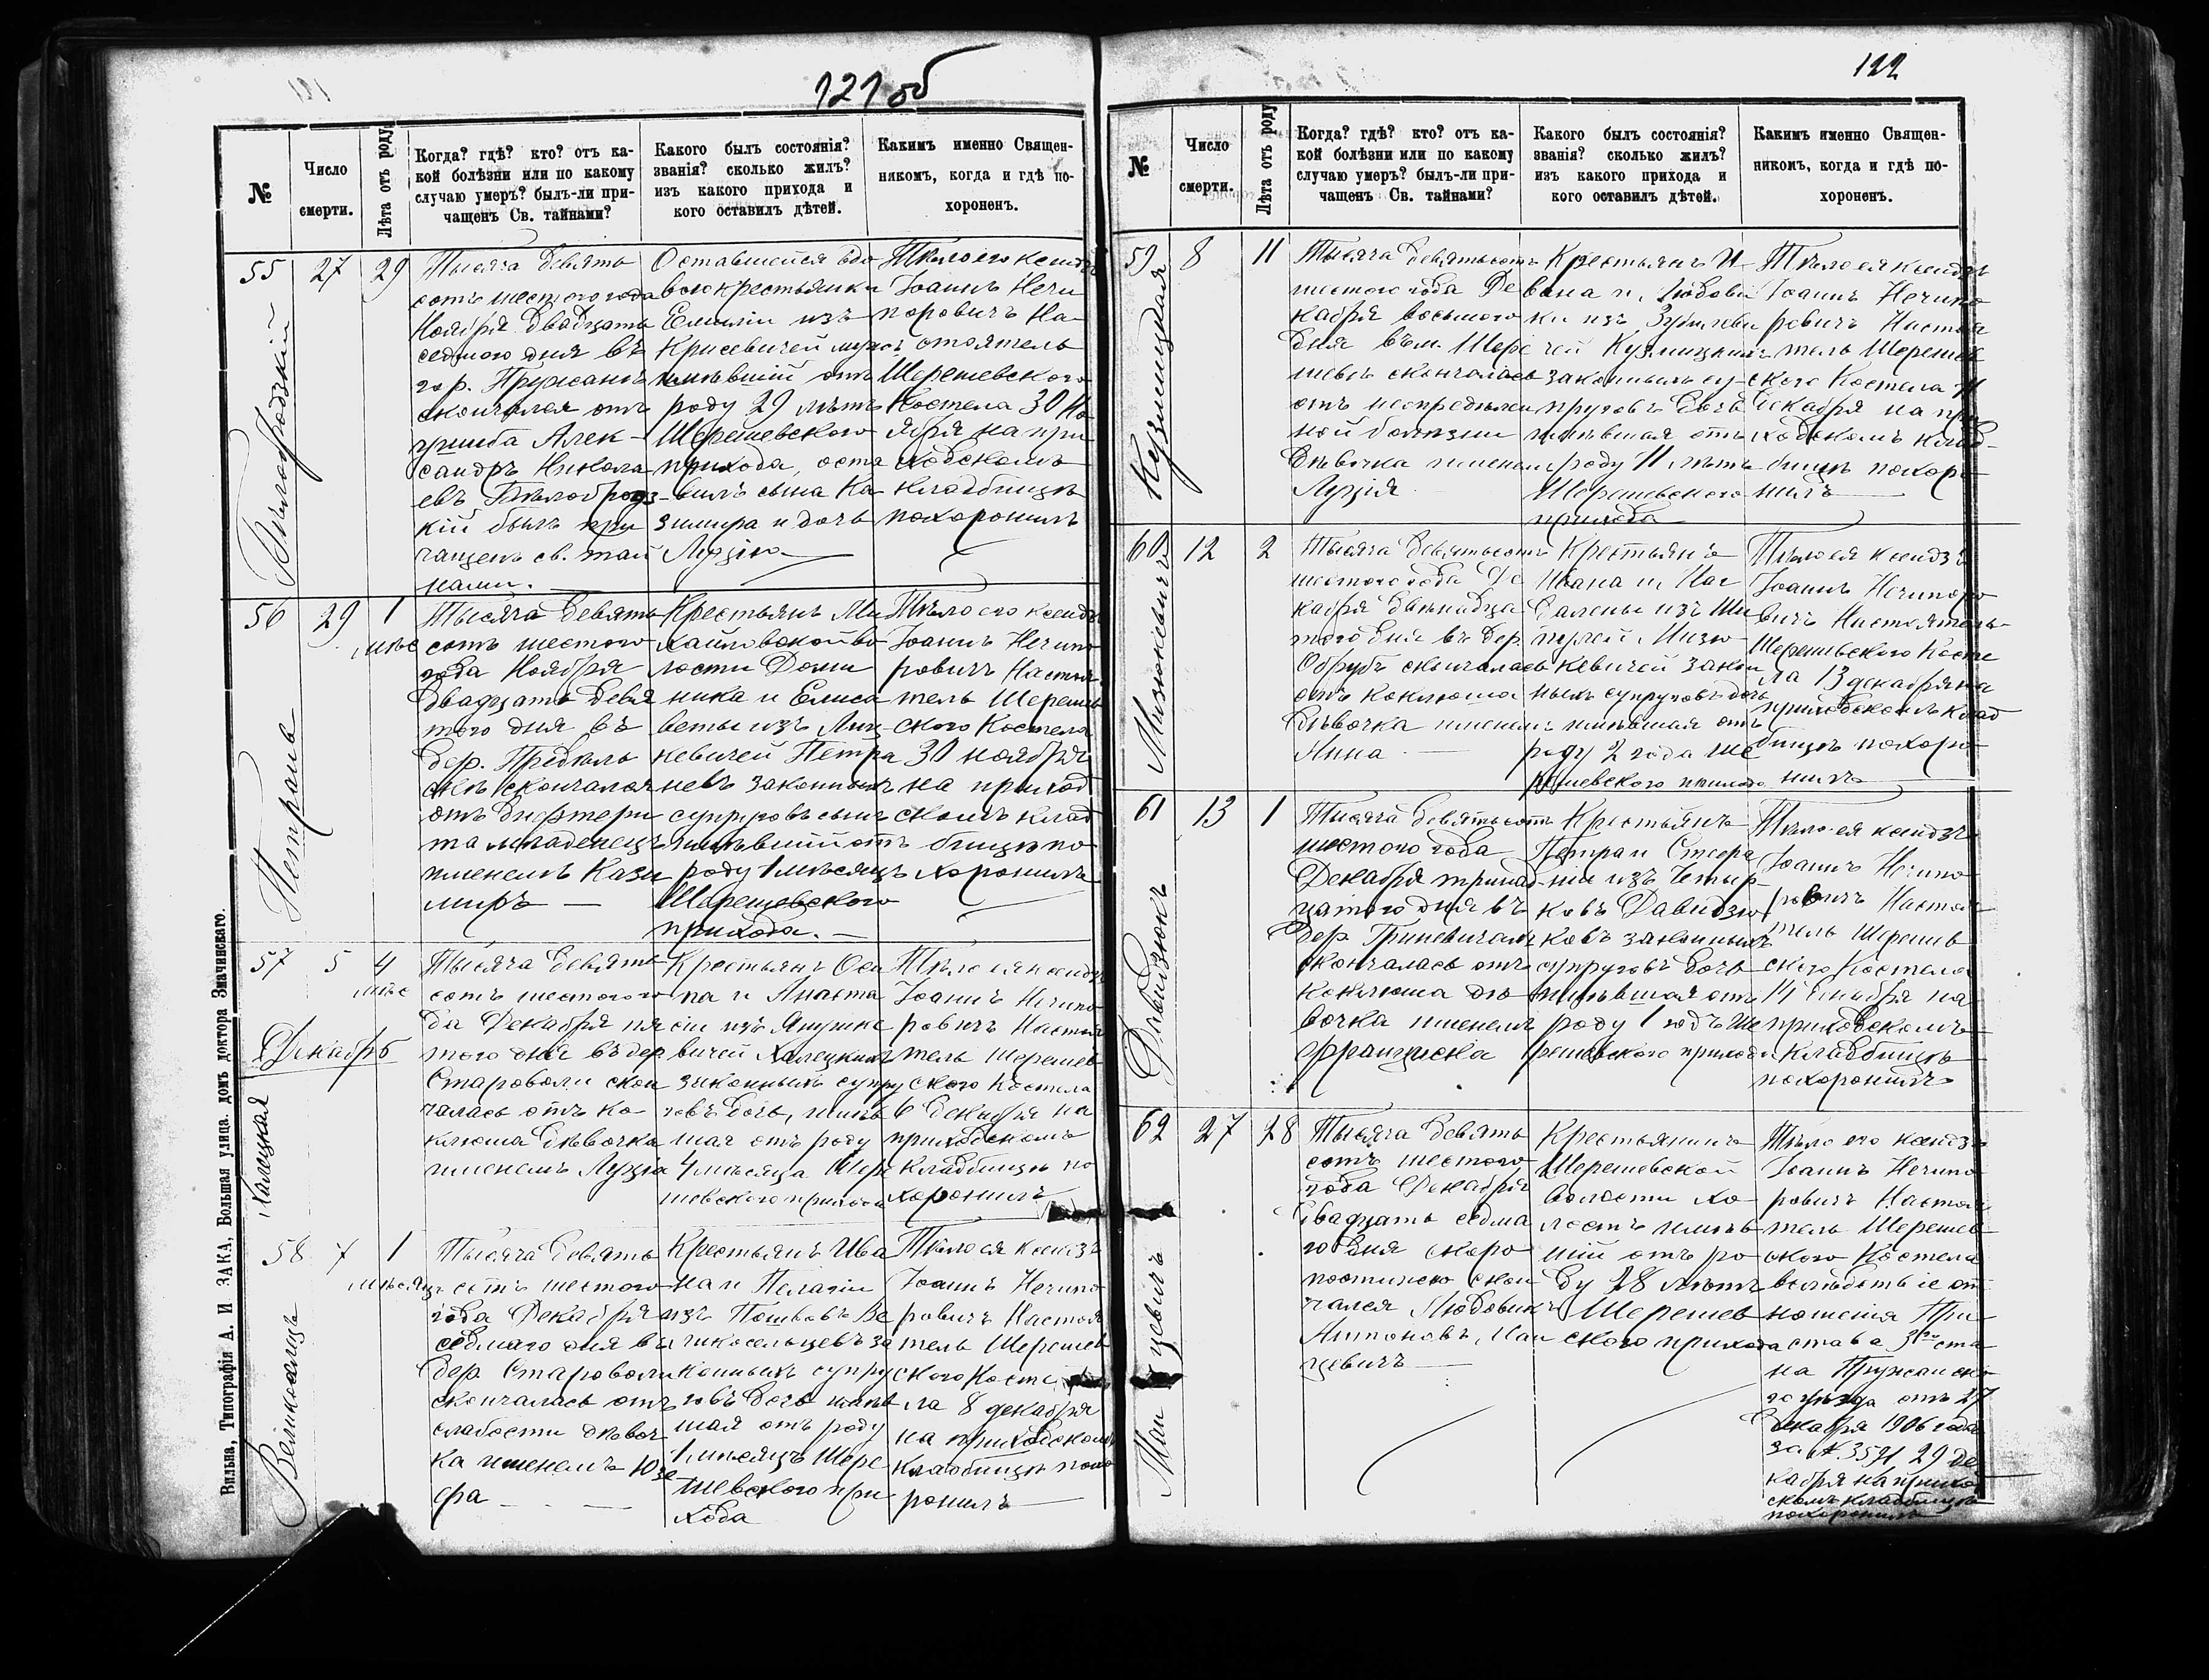 121 об
№
Число
смерти.
Лѣта отъ роду
Когда? гдѣ? кто? отъ ка-
кой болѣзни или по какому
случаю умеръ? былъ-ли при-
чащенъ Св. тайнами?
Какого былъ состоянія?
званія? сколько жилъ?
изъ какого прихода и
кого оставилъ дѣтей.
Какимъ именно Священ-
никомъ, когда и гдѣ по-
хороненъ.
55
27
29
Тысяча девять
сотъ шестого года
Ноября двадцать
седмого дня въ
гор. Пружанъ
скончался отъ
Алек-
сандръ Никола
евъ Бѣлобродз-
кій былъ при
чащенъ св. тай
нами.
Оставшейся вдо
вою крестьянки
Емиліи изъ
Крисевичей мужъ
имѣвшій отъ
роду 29 лѣтъ
Шерешевского
прихода, оста
вилъ сына Ка
зимира и дочь
Луцію
Тѣло его ксендзъ
Іоаннъ Нечи
поровичъ На-
стоятель
Шерешевского
Костела 30 Но
ября на при
ходскомъ
кладбищѣ
похоронилъ
56
29
1
мѣс
Петраневъ
Тысяча девять
сотъ шестого
года Ноября
двадцать девя
того дня въ
дер.
скончался
отъ дифтери
та младенецъ
именемъ Кази
миръ
Крестьянъ Ми
хайловской во
лости Доми
ника и Елиса
веты изъ
невичей Петра
невъ законныхъ
супруговъ сынъ
имѣвшій отъ
роду 1 мѣсяцъ
Шерешевского
прихода.
Тѣло его ксендзъ
Іоаннъ Нечипо
ровичъ Настоя
тель Шерешев
ского Костела
30 ноября
на приход
скомъ клад
бищѣ по
хоронилъ
57
5
4
мѣс
Декабрь
Халецкая
Тысяча девять
сотъ шестого го
да Декабря пя
того дня въ дер
Староволи скон
чалась отъ ко-
клюша дѣвочка
именемъ Луція
Крестьянъ Оси
па и Анаста
сіи изъ Янушке
вичей Халецкихъ
законныхъ супру
говъ дочь, имѣв
шая отъ роду
4 мѣсяца Шере
шевского прихода
Тѣло ея ксендзъ
Іоаннъ Нечипо
ровичъ Настоя
тель Шерешев
ского Костела
6 Декабря на
приходскомъ
кладбищѣ по
хоронилъ
58
7
1
мѣсяцъ
Великоселецъ
Тысяча девять
сотъ шестого
года Декабря
седмаго дня въ
дер. Староволи
скончалась отъ
слабости дѣвоч
ка именемъ Юзе
фа
Крестьянъ Ива
на и Пелагіи
изъ Ве
ликосельцевъ за
конныхъ супру
говъ дочь имѣв
шая отъ роду
1 мѣсяцъ Шере
шевского при
хода
Тѣло ея ксендзъ
Іоаннъ Нечипо
ровичъ Настоя
тель Шерешев
ского Косте
ла 8 декабря
на приходскомъ
кладбищѣ похо
ронилъ
Вильна, Типографія А. И ЗАКА, Большая улица. домъ доктора Значинскаго.
122
№
Число
смерти.
Лѣта отъ роду
Когда? гдѣ? кто? отъ ка-
кой болѣзни или по какому
случаю умеръ? былъ-ли при-
чащенъ Св. тайнами?
Какого былъ состоянія?
званія? сколько жилъ?
изъ какого прихода и
кого оставилъ дѣтей.
Какимъ именно Священ-
никомъ, когда и гдѣ по-
хороненъ.
59
8
11
Кузмицкая
Тысяча девятьсотъ
шестого года Де
кабря восьмого
дня въ м. Шере
шевѣ скончалась
отъ неопредѣлен
ной болѣзни
дѣвочка именемъ
Луція
Крестьянъ И-
вана и Людови
ки изъ
чей Кузмицкихъ
законныхъ су-
пруговъ дочь
имѣвшая отъ
роду 11 лѣтъ
Шерешевского
прихода
Тѣло ея ксендзъ
Іоаннъ Нечипо
ровичъ Настоя
тель Шерешев
ского Костела 11
Декабря на при
ходскомъ клад-
бищѣ похоро
нилъ
60
12
2
Мизюкевичъ
Тысяча девятьсотъ
шестого года Де
кабря двѣнадца
того дня въ дер.
Обрубъ скончалась
отъ коклюша
дѣвочка именемъ
Анна
Крестьянъ
Ивана и Маг
далены изъ Ши
пулей Мизю-
кевичей закон
ныхъ супруговъ дочь
имѣвшая отъ
роду 2 года Ше
решевского прихода
Тѣло ея ксендзъ
Іоаннъ Нечипоро
вичъ Настоятель-
Шерешевского Косте
ла 13 декабря на
приходскомъ клад
бищѣ похоро
нилъ
61
13
1
Давидзюкъ
Тысяча девятьсотъ
шестого года
Декабря тринад-
цатого дня въ
дер. Гриневичахъ
скончалась отъ
коклюша дѣ
вочка именемъ
Франциска
Крестьянъ
Петра и Стефа
ніи изъ Четыр-
ковъ Давидзю
ковъ законныхъ
супруговъ дочь
имѣвшая отъ
роду 1 годъ Ше
решевского прихода
Тѣло ея ксендзъ
Іоаннъ Нечипо
ровичъ Настоя
тель Шерешев
ского Костела
14 Декабря на
приходскомъ
кладбищѣ
похоронилъ
62
27
28
Тысяча девять
сотъ шестого
года Декабря
двадцать седма
го дня скоро
постижно скон
чался Людовикъ
Антоновъ Ман
цевичъ
Крестьянинъ
Шерешевской
волости хо-
лостъ имѣв
шій отъ ро
ду 28 лѣтъ
Шерешев
ского прихода
Тѣло его ксендзъ
Іоаннъ Нечипо
ровичъ Настоя
тель Шерешев
ского Костела
вслѣдствіе от
ношенія При
става 3го ста
на Пружанско
го уѣзда отъ 27
Декабря 1906 года
за № 3571 29 Де
кабря на приход
скомъ кладбищѣ
похоронилъ